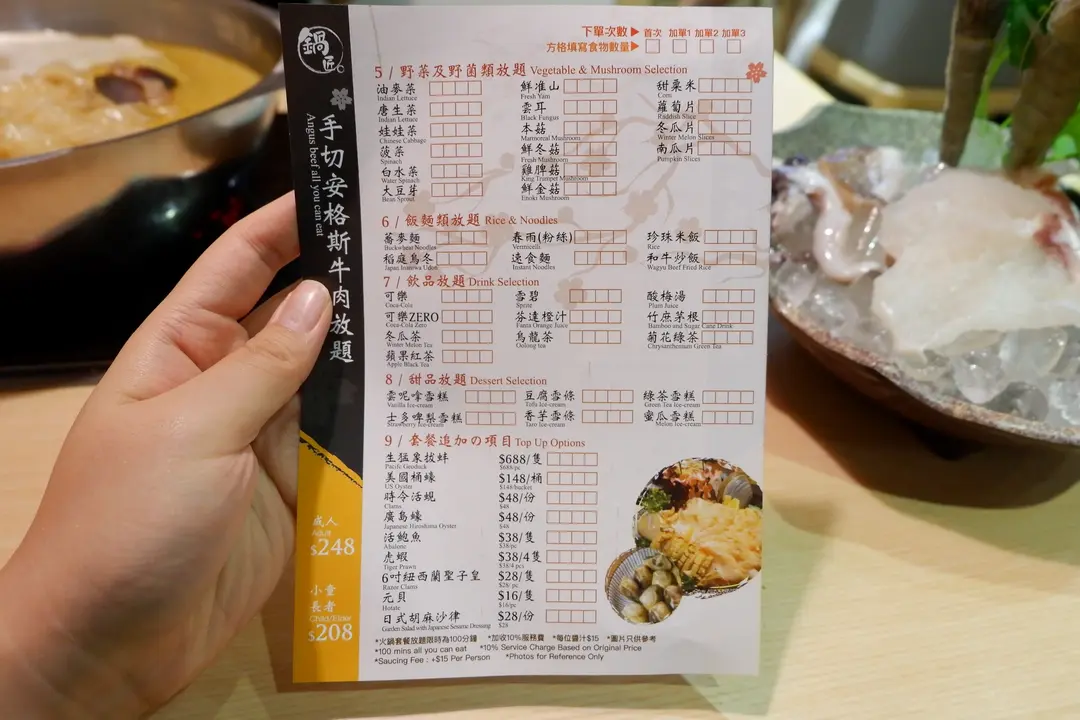 鍋匠
手切安格斯牛肉放題
Angus beef all you can eat
成人
Adult
$248
小童
長者
Child/Elder
$208
下單次數▶ 首次 加單1 加單2 加單3
方格填寫食物數量▶
5 / 野菜及野菌類放題 Vegetable & Mushroom Selection
油麥菜 鮮淮山 甜粟米
Indian Lettuce Fresh Yam Corn
唐生菜 雲耳 蘿蔔片
Indian Lettuce Black Fungus Raddish Slice
娃娃菜 本菇 冬瓜片
Chinese Cabbage Marmoreal Mushroom Winter Melon Slices
菠菜 鮮冬菇 南瓜片
Spinach Fresh Mushroom Pumpkin Slices
白水菜 雞脾菇
Water Spinach King Trumpet Mushroom
大豆芽 鮮金菇
Bean Sprout Enoki Mushroom
6 / 飯麵類放題 Rice & Noodles
蕎麥麵 春雨(粉絲) 珍珠米飯
Buckwheat Noodles Vermicelli Rice
稻庭烏冬 速食麵 和牛炒飯
Japan Inaniwa Udon Instant Noodles Wagyu Beef Fried Rice
7 / 飲品放題 Drink Selection
可樂 雪碧 酸梅湯
Coca-Cola Sprite Plum Juice
可樂ZERO 芬達橙汁 竹庶茅根
Coca-Cola Zero Fanta Orange Juice Bamboo and Sugar Cane Drink
冬瓜茶 烏龍茶 菊花綠茶
Winter Melon Tea Oolong tea Chrysanthemum Green Tea
蘋果紅茶
Apple Black Tea
8 / 甜品放題 Dessert Selection
雲呢拿雪糕 豆腐雪條 綠茶雪糕
Vanilla Ice-cream Tofu Ice-cream Green Tea Ice-cream
士多啤梨雪糕 香芋雪條 蜜瓜雪糕
Strawberry Ice-cream Taro Ice-cream Melon Ice-cream
9 / 套餐追加の項目 Top Up Options
生猛象拔蚌 $688/隻
Pacific Geoduck $688/pc
美國桶蠔 $148/桶
US Oyster $148/bucket
時令活蜆 $48/份
Clams $48
廣島蠔 $48/份
Japanese Hiroshima Oyster $48
活鮑魚 $38/隻
Abalone $38/pc
虎蝦 $38/4隻
Tiger Prawn $38/4 pcs
6吋紐西蘭聖子皇 $28/隻
Razor Clams $28/ pc
元貝 $16/隻
Hotate $16/pc
日式胡麻沙律 $28/份
Garden Salad with Japanese Sesame Dressing $28
*火鍋套餐放題限時為100分鐘 *加收10%服務費 *每位醬汁$15 *圖片只供參考
*100 mins all you can eat *10% Service Charge Based on Original Price
*Saucing Fee : +$15 Per Person *Photos for Reference Only